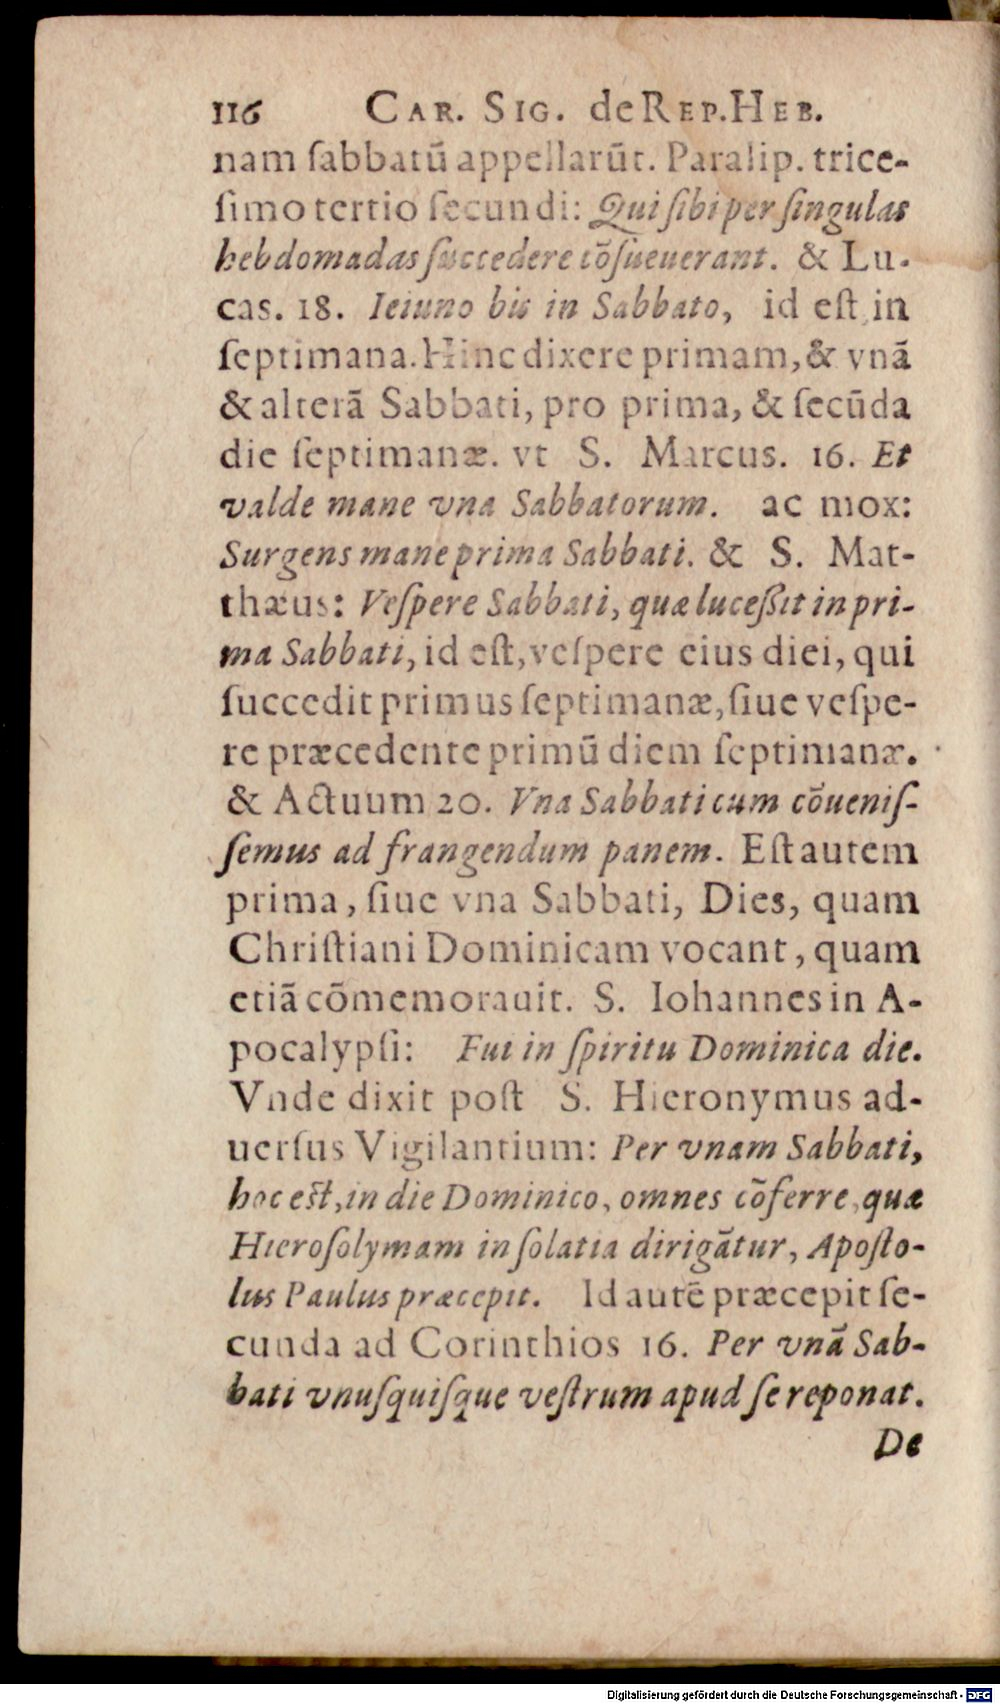 116 CAR. SIG. de REP. HEB.
nam ſabbatū appellarūt. Paralip. trice-
ſimo tertio ſecundi: Qui ſibi per ſingulas
hebdomadas ſuccedere cōſueuerant. & Lu-
cas. 18. Ieiuno bis in Sabbato, id eſt in
ſeptimana. Hinc dixere primam, & vnā
& alterā Sabbati, pro prima, & ſecūda
die ſeptimanæ. vt S. Marcus. 16. Et
valde mane vna Sabbatorum. ac mox:
Surgens mane prima Sabbati. & S. Mat-
thæus: Veſpere Sabbati, quæ luceßit in pri-
ma Sabbati, id eſt, veſpere eius diei, qui
ſuccedit primus ſeptimanæ, ſiue veſpe-
re præcedente primū diem ſeptimanæ.
& Actuum 20. Vna Sabbati cum cōueniſ-
ſemus ad frangendum panem. Eſt autem
prima, ſiue vna Sabbati, Dies, quam
Chriſtiani Dominicam vocant, quam
etiā cōmemorauit. S. Iohannes in A-
pocalypſi: Fui in ſpiritu Dominica die.
Vnde dixit poſt S. Hieronymus ad-
uerſus Vigilantium: Per vnam Sabbati,
hoc eſt, in die Dominico, omnes cōferre, quæ
Hieroſolymam in ſolatia dirigātur, Apoſto-
lus Paulus præcepit. Id autē præcepit ſe-
cunda ad Corinthios 16. Per vnā Sab-
bati vnuſquiſque veſtrum apud ſe reponat.
De
Digitalisierung gefördert durch die Deutsche Forschungsgemeinschaft - DFG